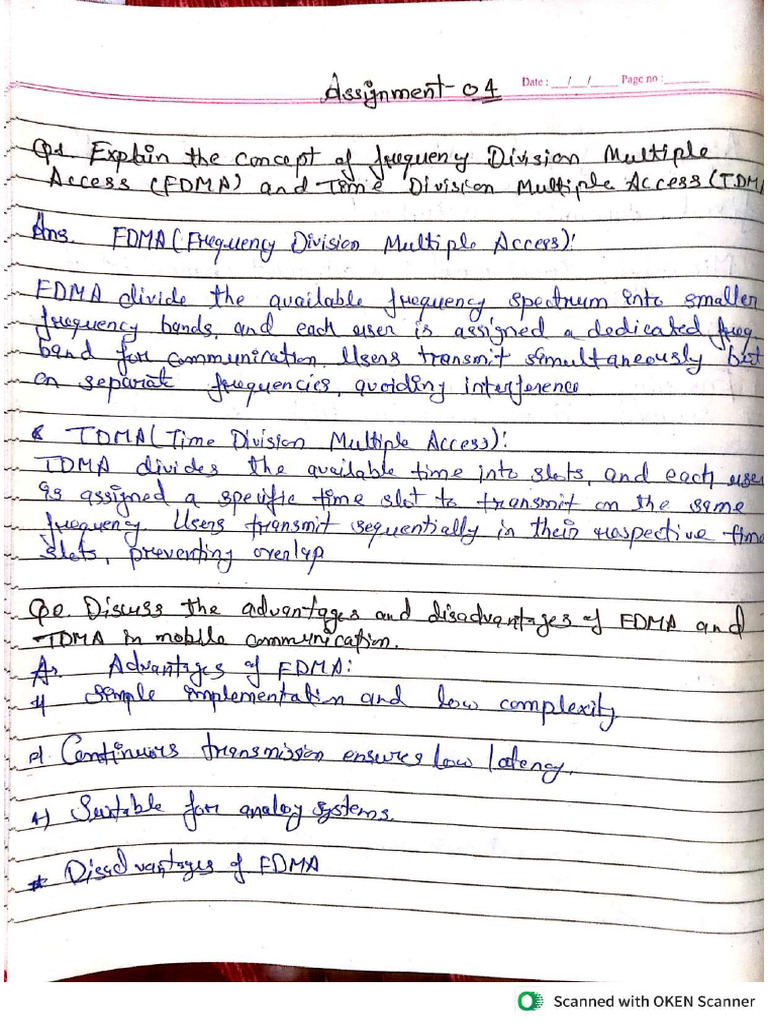 Assignment-04
Date: __/__/__ Page no:______
Q1. Explain the concept of frequeny Division Multiple
Access (FDMA) and Time Division Multiple Access (TDM
Ans. FDMA (Frequency Division Multiple Access):
FDMA divide the available frequency spectrum into smaller
frequency bands, and each user is assigned a dedicated freq
band for communication. Users transmit simultaneously but
on separate frequencies, avoiding interference
TDMA (Time Division Multiple Access):
TDMA divides the available time into slots, and each user
is assigned a specific time slot to transmit on the same
frequency Users transmit sequentially in their respective time
slots, preventing overlap
Q2. Discuss the advantages and disadvantages of FDMA and
TDMA in mobile communication.
Advantages of FDMA:
Simple implementation and low complexity
Continuous transmission ensures low latency.
Suitable for analog systems.
* Disadvantages of FDMA
Scanned with OKEN Scanner